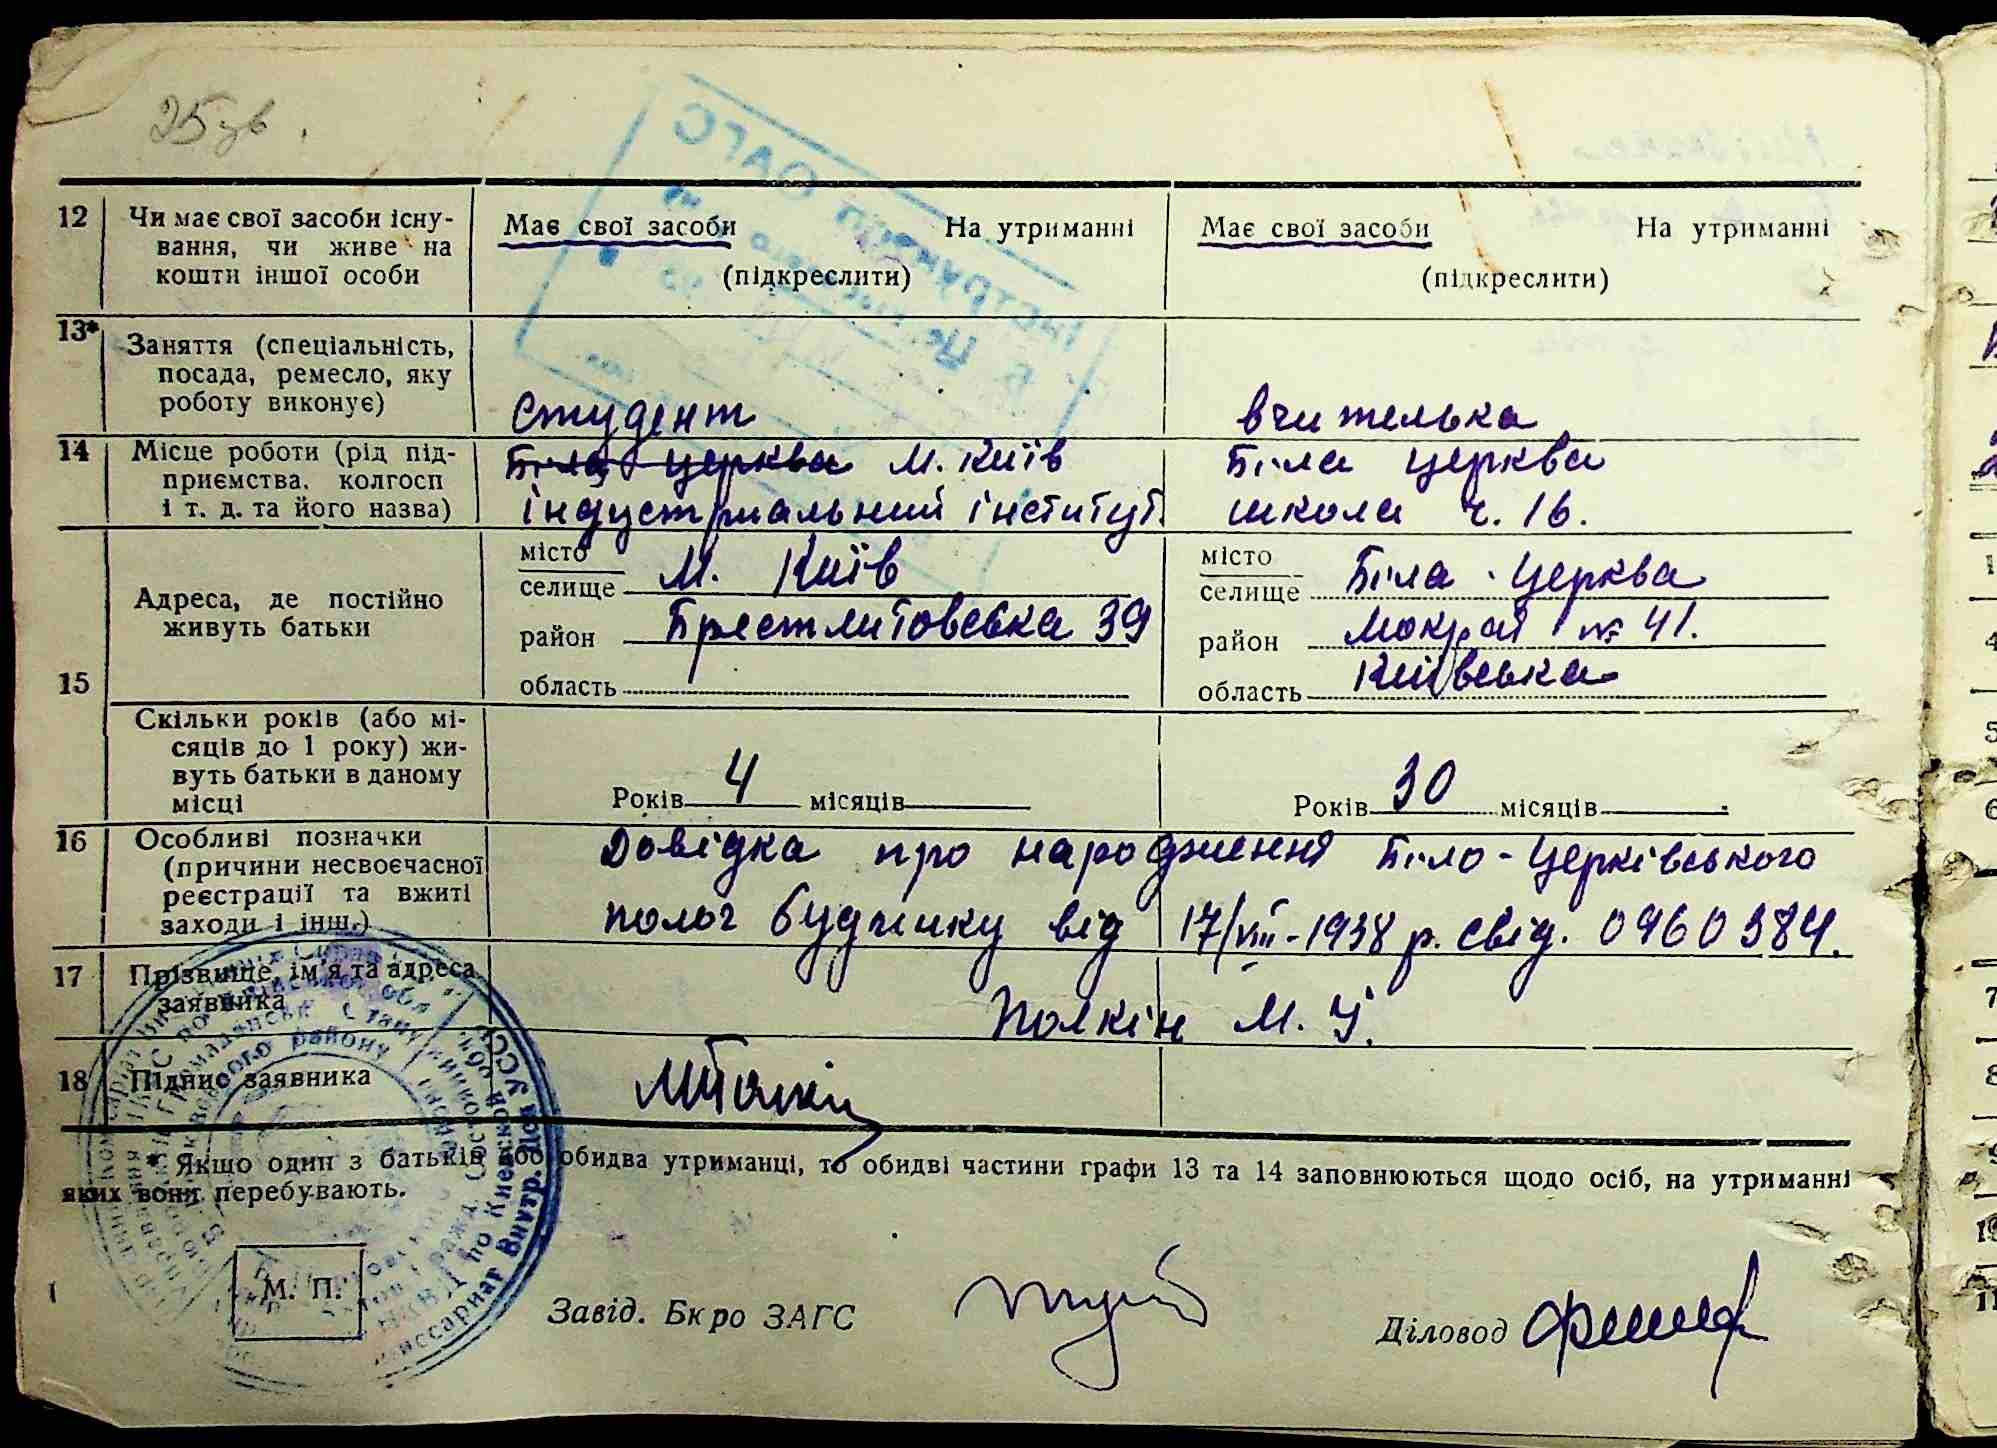 25
12 Чи має свої засоби існу-
вання, чи живе на
кошти іншої особи
Має свої засоби На утриманні
Має свої засоби На утриманні
(підкреслити)
(підкреслити)
13* Заняття (спеціальність,
посада, ремесло, яку
роботу виконує)
студент
вчителька
14 Місце роботи (рід під-
приємства, колгосп
і т. д. та його назва)
Біла церква м. Київ
індустріальний інститут.
Біла церква
школа ч. 16.
15 Адреса, де постійно
живуть батьки
місто
селище м. Київ
район Брестлитовська 39
область
місто
селище Біла-церква
район Мокрая № 41.
область Київська
Скільки років (або мі-
сяців до 1 року) жи-
вуть батьки в даному
місці
Років 4 місяців
Років 30 місяців
16 Особливі позначки
(причини несвоєчасної
реєстрації та вжиті
заходи і інш.)
Довідка про народження Біло-Церківського
полог будинку від 17/VIII-1938 р. свід. 0960384.
17 Прізвище, ім'я та адреса
заявника
Полкін М. У.
18 Підпис заявника
* Якщо один з батьків або обидва утриманці, то обидві частини графи 13 та 14 заповнюються щодо осіб, на утриманні
яких вони перебувають.
М. П.
Завід. Бюро ЗАГС
Діловод